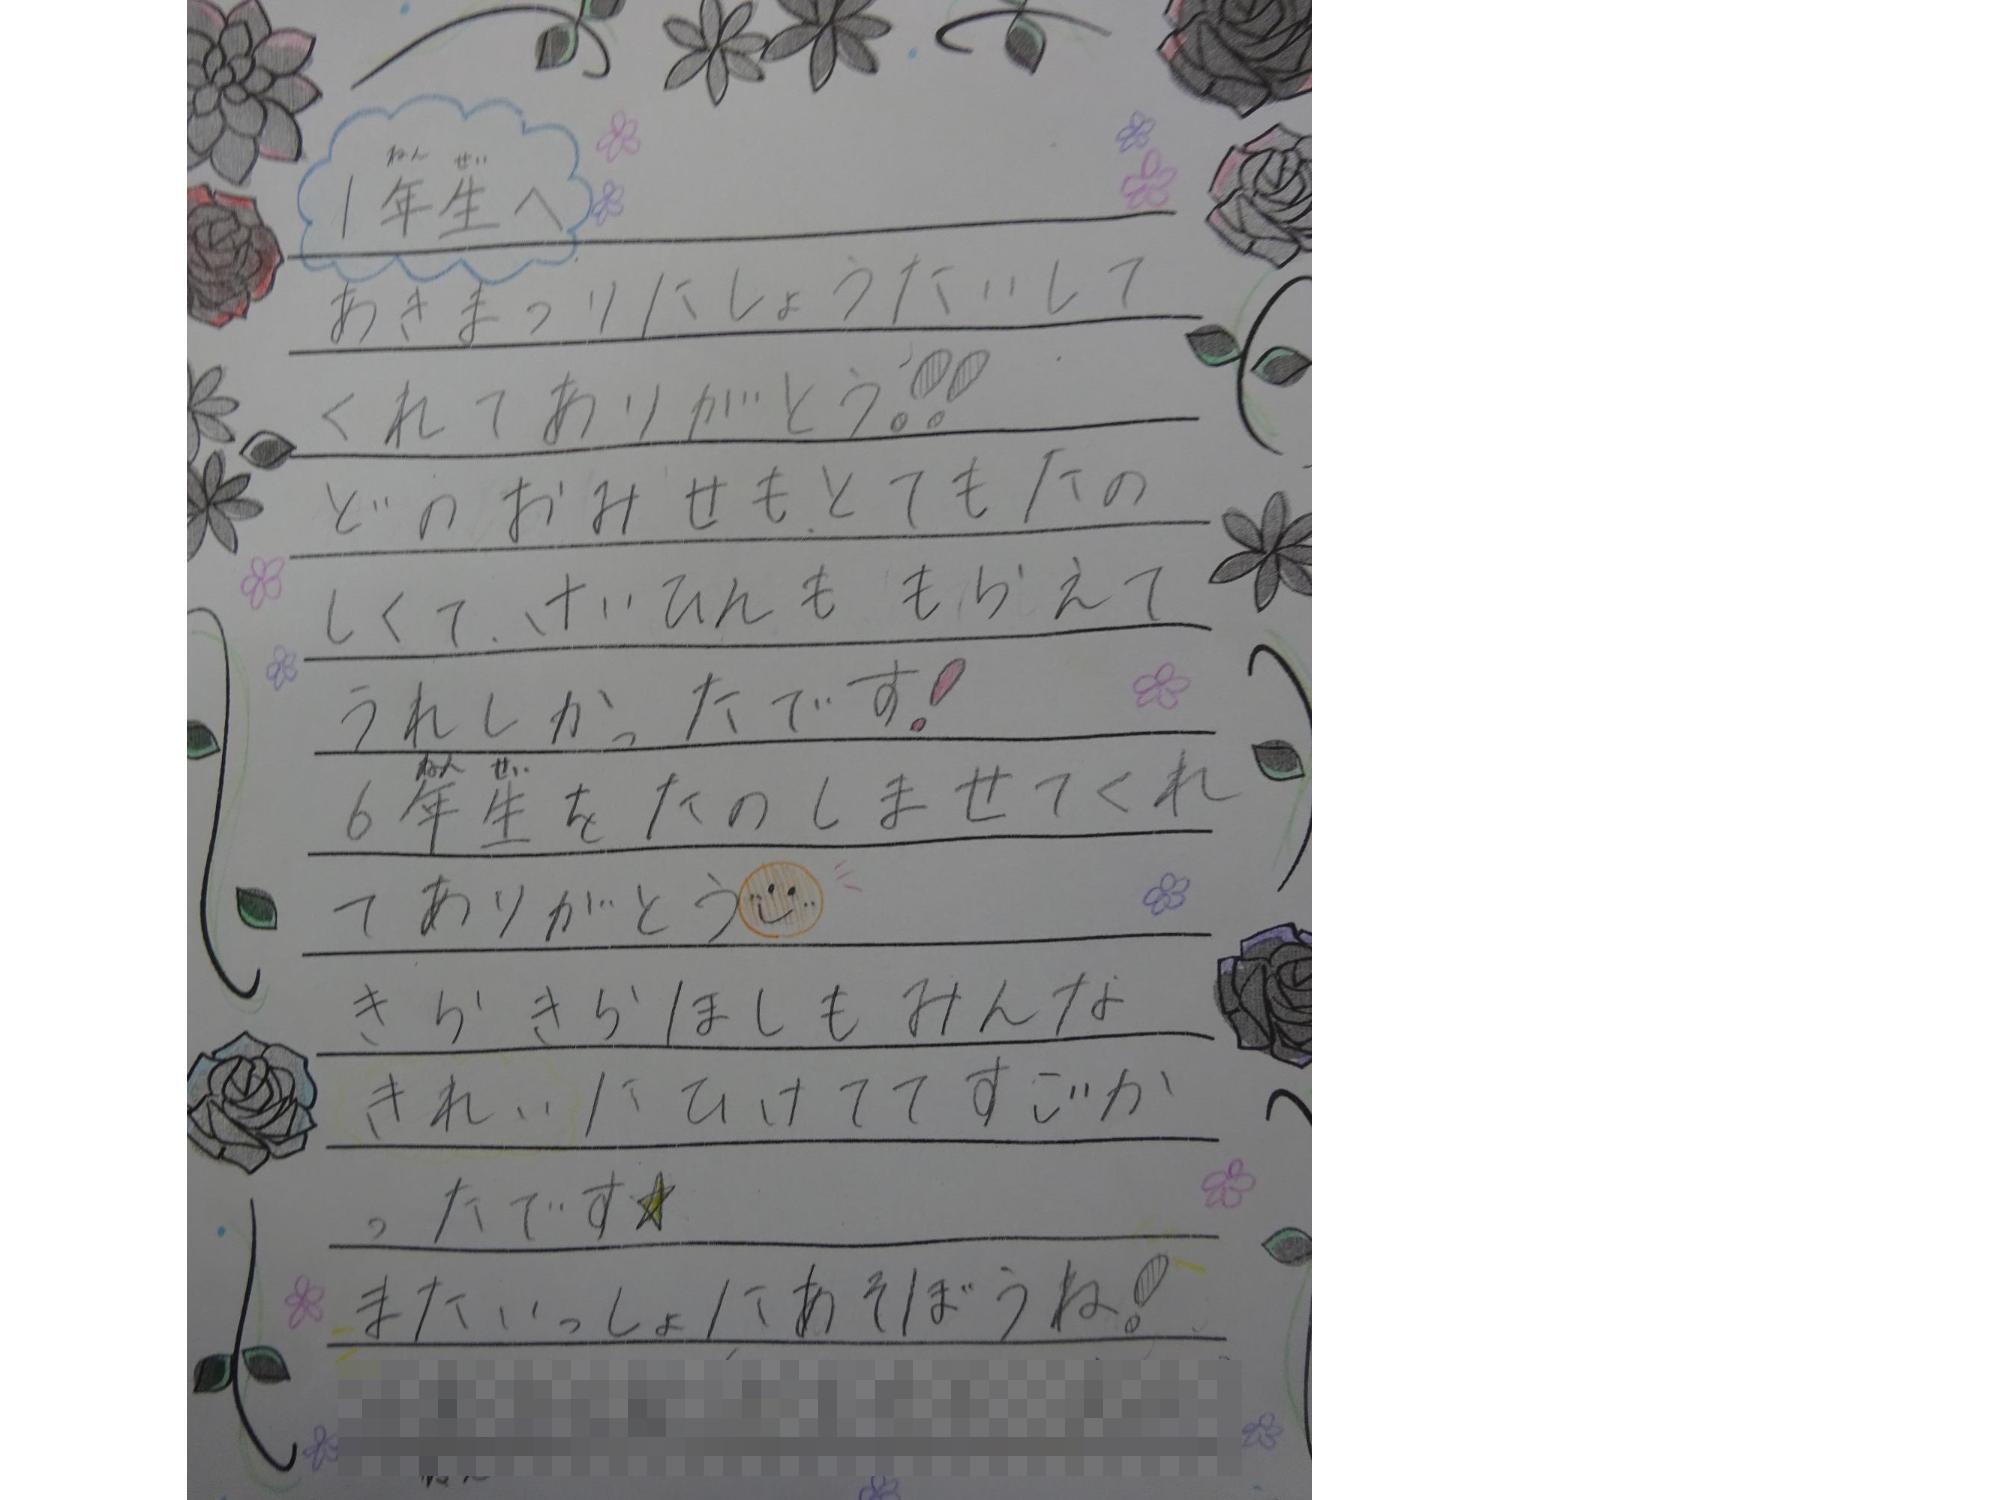 ねん せい
1年生へ
あきまつりにしょうたいして
くれてありがとう!!
どのおみせも、とてもたの
しくて、けいひんももらえて
うれしかったです!
ねん せい
6年生をたのしませてくれ
てありがとう
きらきらほしもみんな
きれいにひけててすごか
ったです★
またいっしょにあそぼうね!